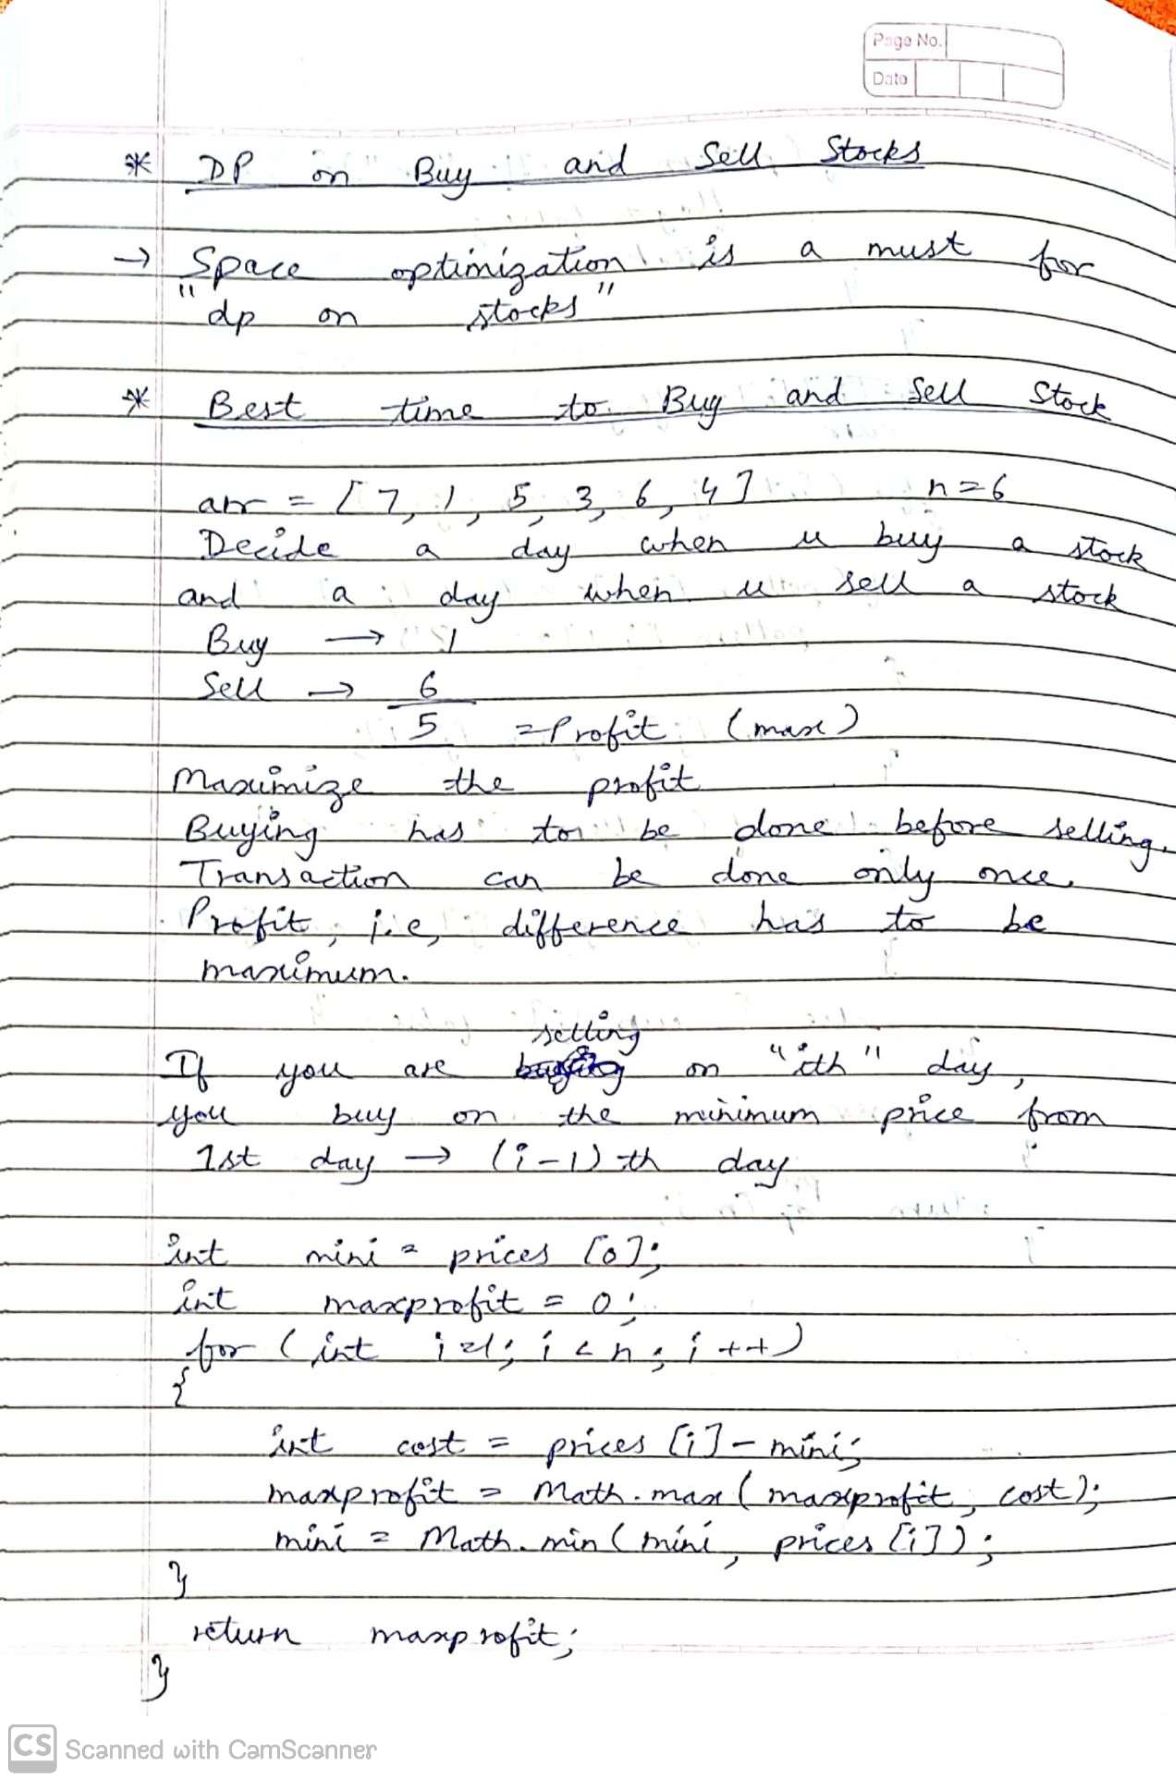 Page No.
Date
* DP on Buy and Sell Stocks
→ Space optimization is a must for
"dp on stocks"
* Best time to Buy and Sell Stock
arr = [7, 1, 5, 3, 6, 4] n=6
Decide a day when u buy a stock
and a day when u sell a stock
Buy → 1
Sell → 6
5 = Profit (max)
Maximize the profit
Buying has to be done before selling.
Transaction can be done only once.
Profit, i.e, difference has to be
maximum.
selling
If you are on "ith" day,
you buy on the minimum price from
1st day → (i-1)th day
int mini = prices [0];
int maxprofit = 0;
for (int i=1; i < n; i++)
{
int cost = prices [i] - mini;
maxprofit = Math.max (maxprofit, cost);
mini = Math.min (mini, prices [i]);
}
return maxprofit;
}
CS Scanned with CamScanner